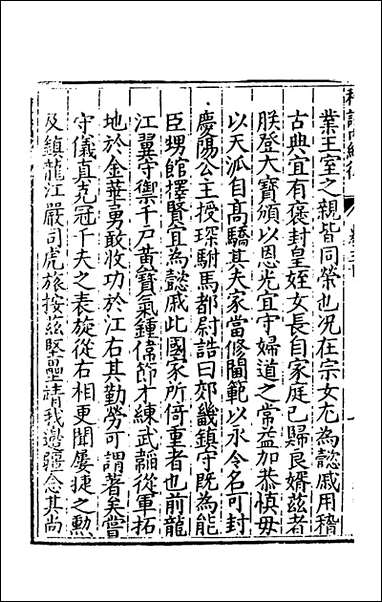 業王室之親皆同榮也況在宗女尤為懿戚用稽
古典宜有褒封皇姪女長自家庭已歸良婿茲者
朕登大寶頒以恩光宜守婦道之常益加恭慎毋
以天派自高驕其夫家當修閫範以永令名可封
慶陽公主授琛駙馬都尉誥曰郊畿鎮守既為能
臣甥館擇賢宜為懿戚此國家所倚重者也前龍
江翼守禦千戶黃寶氣鍾偉節才練武韜從軍拓
地於金華勇敢收功於江右其勤勞可謂著矣嘗
守儀真克冠千夫之表旋從右相更聞屢捷之勲
及鎮龍江嚴司虎旅按茲堅壘靖我邊疆念其尚